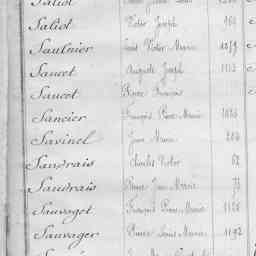 Saliot
Saliot Victor Joseph 161
Saulnier Louis Victor Marie 1259
Saucet Auguste Joseph 1113
Saucet Pierre François
Sancier François Pierre Marie
Savinel Jean Marie
Saudrais Charles Victor 62
Saudrais Pierre Jean Marie 73
Sauvaget François Pierre Marie 1156
Sauvager Pierre Louis Marie 1192